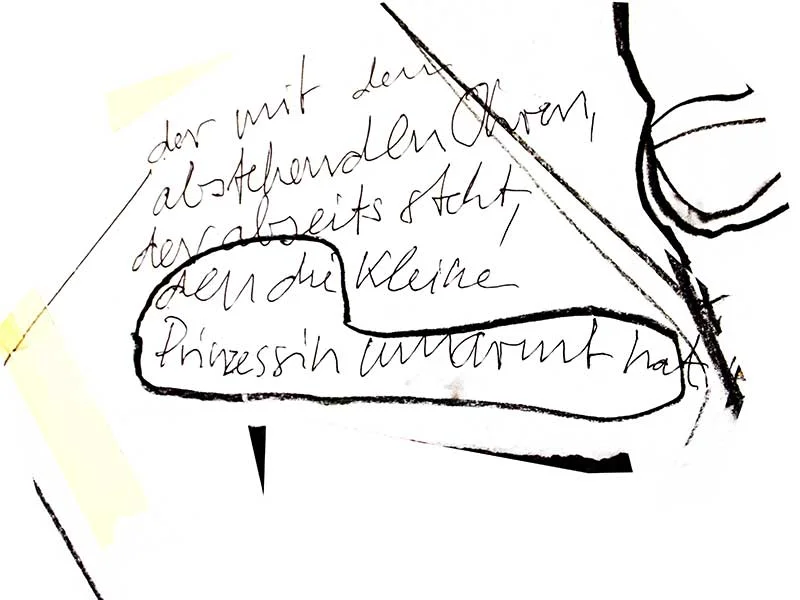 der mit den
abstehenden Ohren,
der abseits steht,
den die kleine
Prinzessin umarmt hat